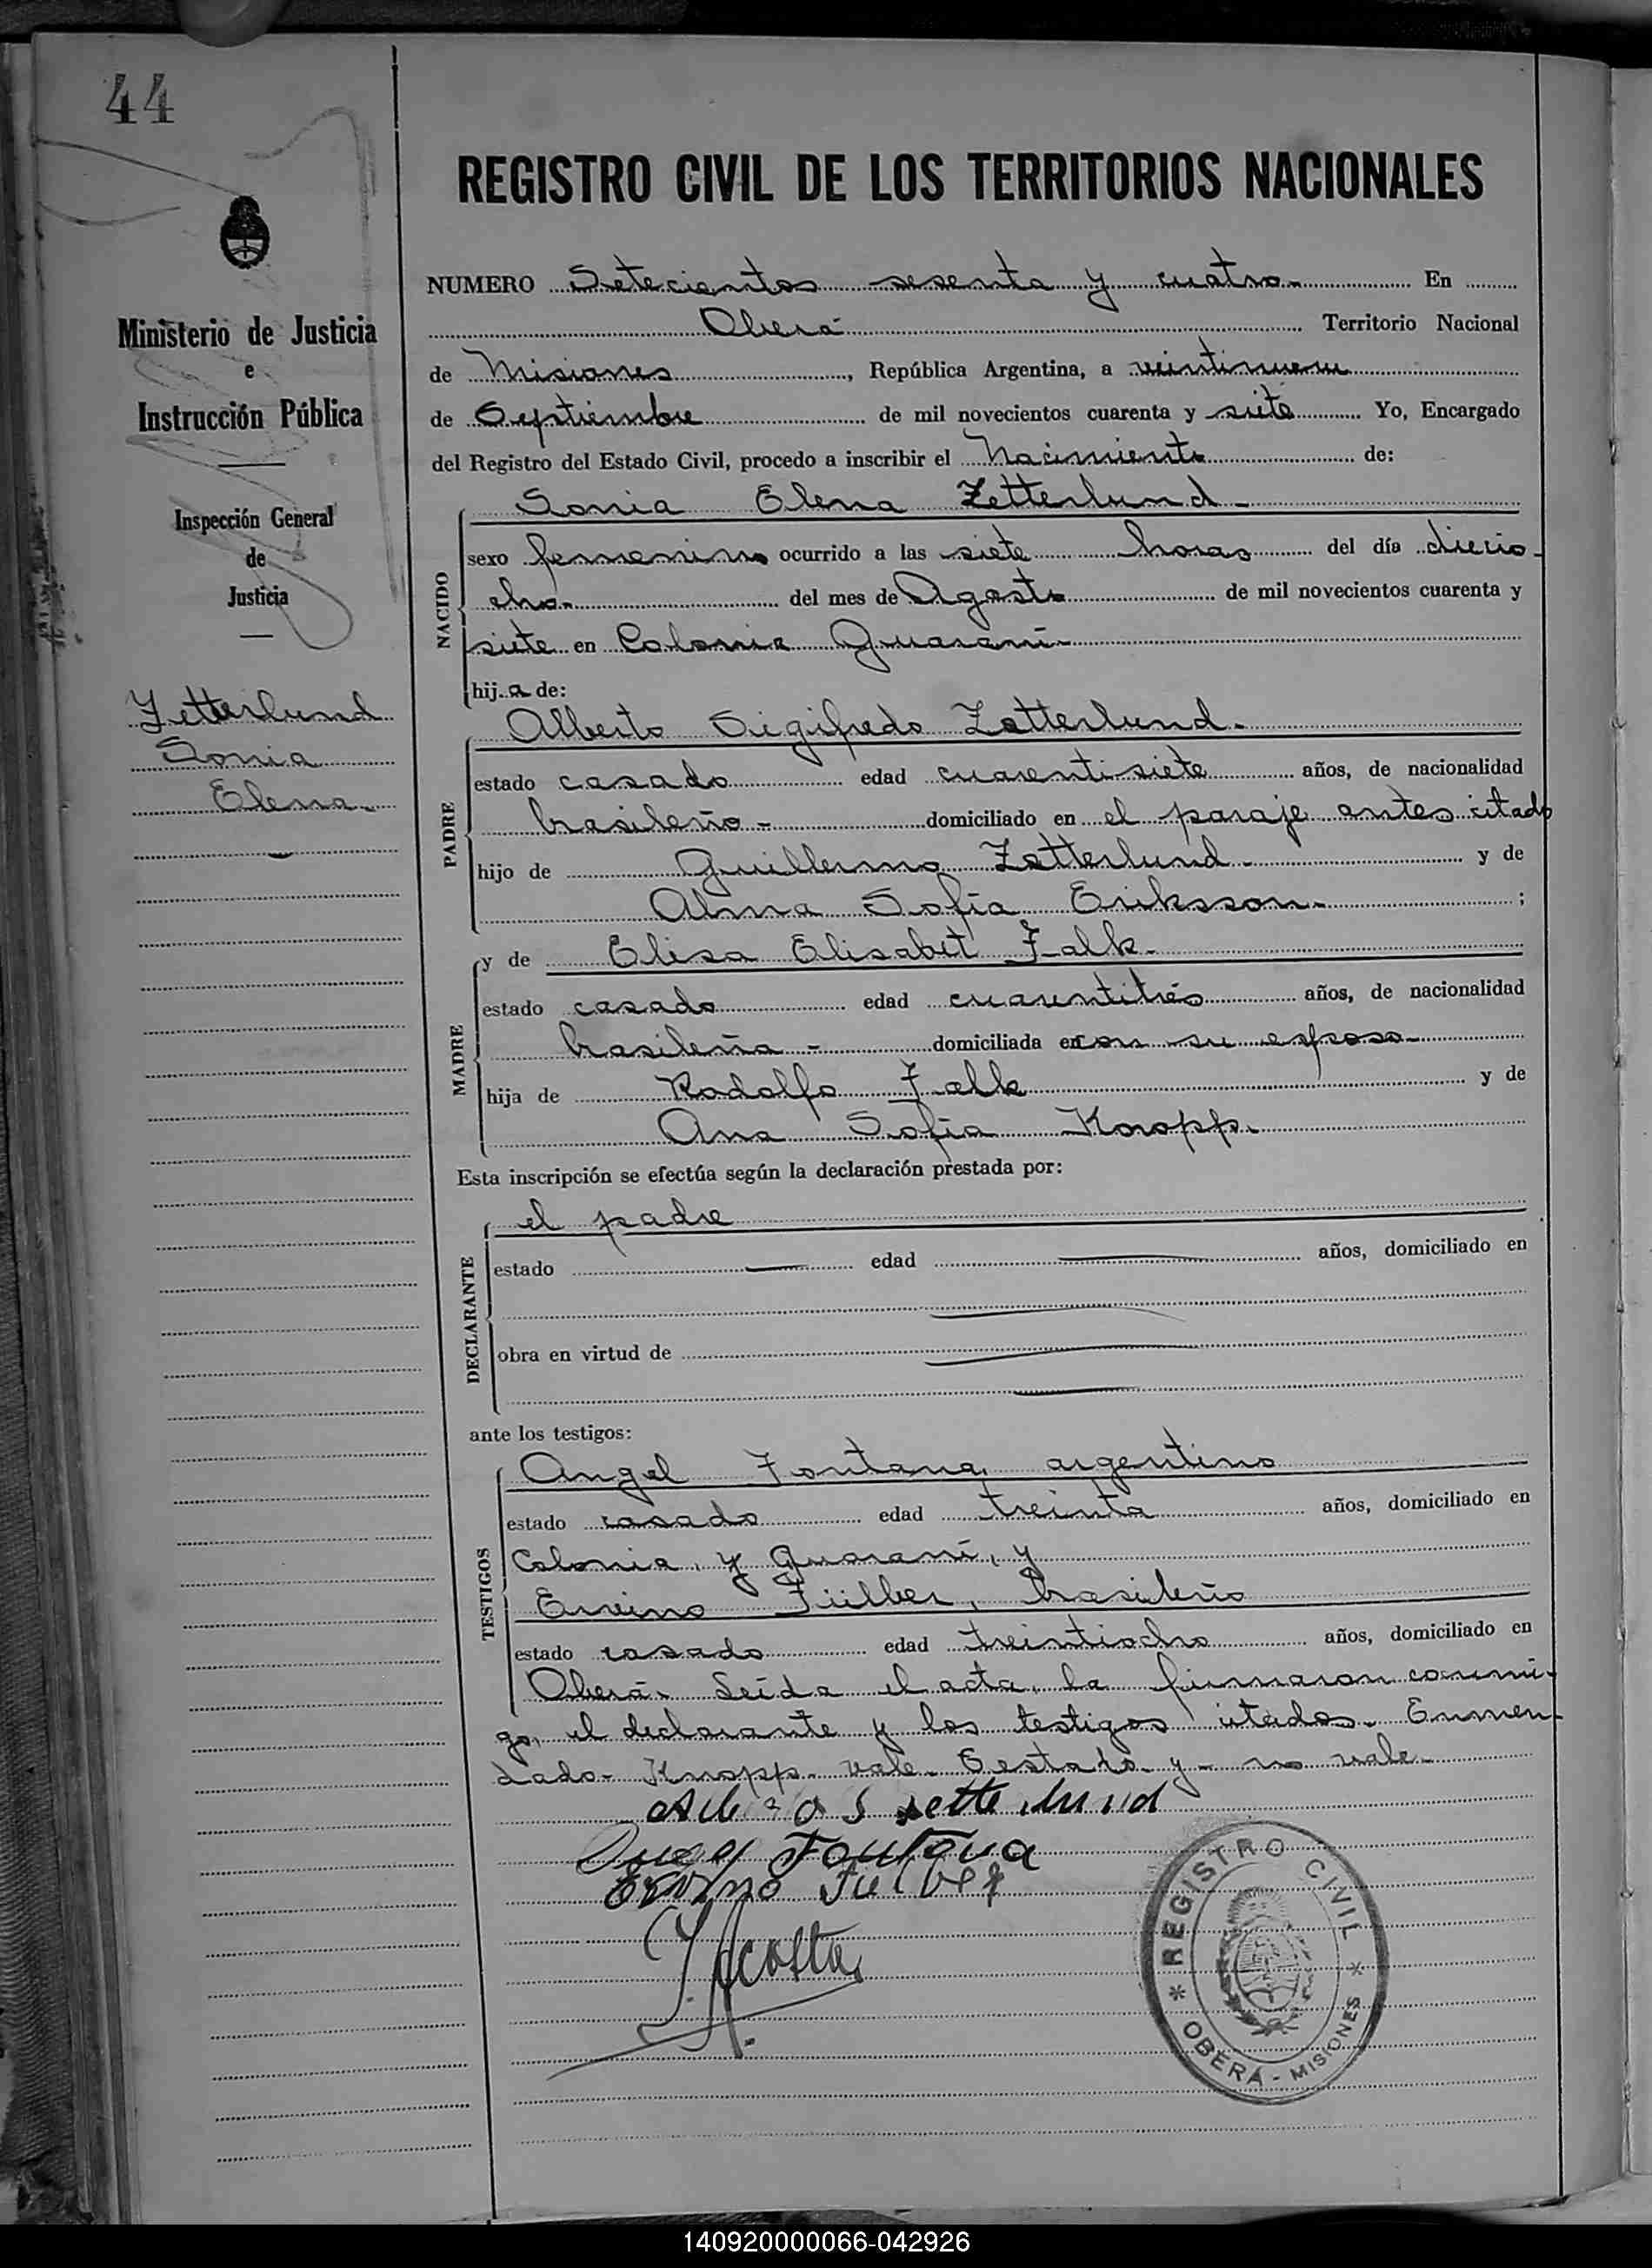 44
REGISTRO CIVIL DE LOS TERRITORIOS NACIONALES
Ministerio de Justicia
e
Instrucción Pública
Inspección General
de
Justicia
Zetterlund
Sonia
Elena
NUMERO Setecientos sesenta y cuatro En
Oberá Territorio Nacional
de Misiones, República Argentina, a veintinueve
de Septiembre de mil novecientos cuarenta y siete Yo, Encargado
del Registro del Estado Civil, procedo a inscribir el Nacimiento de:
NACIDO
Sonia Elena Zetterlund
sexo femenino ocurrido a las siete horas del día diecio-
cho del mes de Agosto de mil novecientos cuarenta y
siete en Colonia Guaraní
hija de:
PADRE
Alberto Sigifredo Zetterlund
estado casado edad cuarentisiete años, de nacionalidad
brasileño domiciliado en el paraje antes citado
hijo de Guillermo Zetterlund y de
Alma Sofia Eriksson;
MADRE
y de Elisa Elisabet Falk
estado casado edad cuarentitrés años, de nacionalidad
brasileña domiciliada en con su esposo
hija de Rodolfo Falk y de
Ana Sofia Knopp.
Esta inscripción se efectúa según la declaración prestada por:
DECLARANTE
el padre
estado edad años, domiciliado en
obra en virtud de
ante los testigos:
TESTIGOS
Angel Fontana, argentino
estado casado edad treinta años, domiciliado en
Colonia, y Guaraní, y
Ervino Fülber, brasileño
estado casado edad treintiocho años, domiciliado en
Oberá. Leída el acta, la firmaron conmi-
go, el declarante y los testigos citados. Enmen-
dado- Knopp- vale. Testado- y- no vale.
Zetterlund
Angel Fontana
Ervino Fülber
J. Acosta
REGISTRO CIVIL
OBERÁ - MISIONES
140920000066-042926